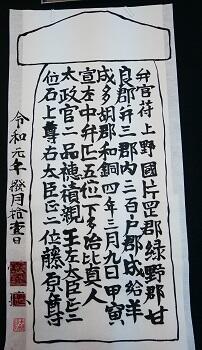 弁官苻上野國片罡郡緑野郡甘
良郡并三郡内三百戸郡成給羊
成多胡郡和銅四年三月九日甲寅
宣左中弁正五位下多治比真人
太政官二品穂積親王左太臣正二
位石上尊右太臣正二位藤原尊
令和元年 撥月拾壹日